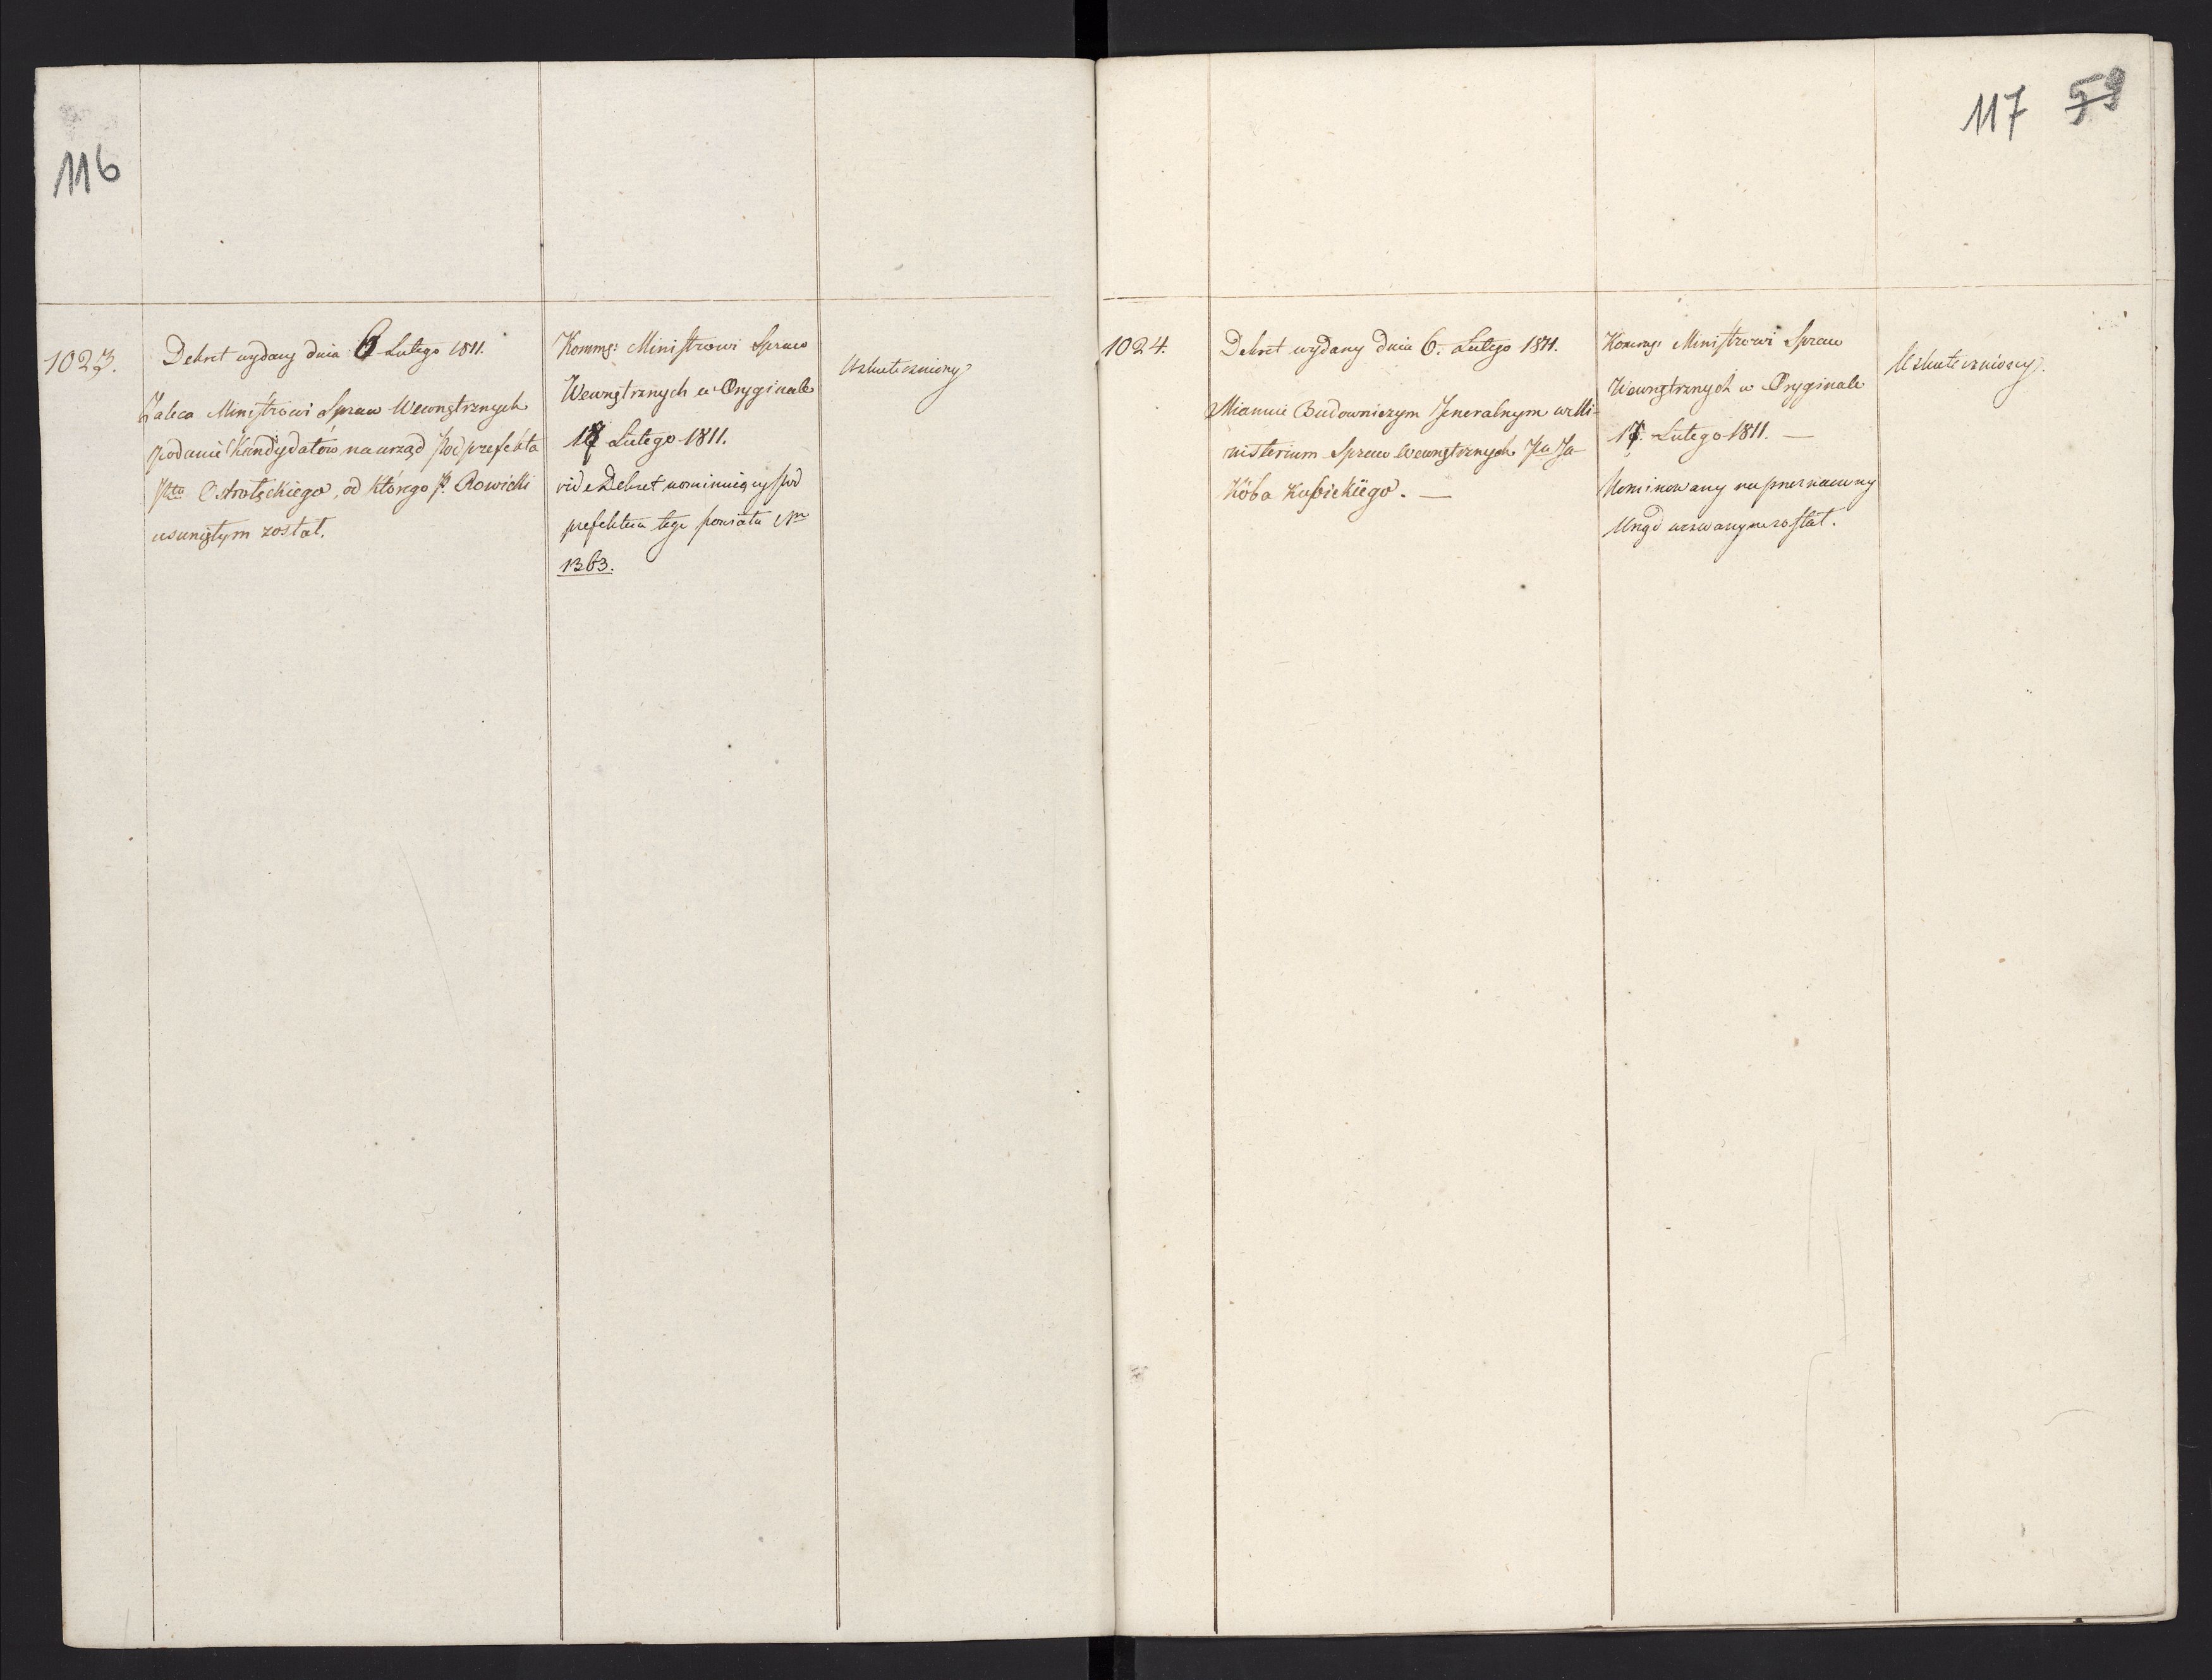 116
1023.
Dekret wydany dnia 6 Lutego 1811.
Zaleca Ministrowi Spraw Wewnętrznych
podanie Kandydatów na urząd Podprefekta
Pttu Ostrołęckiego, od którego P. Rowicki
usuniętym został.
Komms: Ministrowi Spraw
Wewnętrznych w Oryginale
17 Lutego 1811.
vide Dekret nominuiący Pod
prefektem tego powiatu Nro
1363.
Uskuteczniony
117 59
1024.
Dekret wydany dnia 6. Lutego 1811.
Mianuie Budowniczym Jeneralnym w Mi-
nisterium Spraw Wewnętrznych Pa Ja-
kóba Kubickiego. —
Komms: Ministrowi Spraw
Wewnętrznych w Oryginale
17. Lutego 1811. —
Nominowany na przeznaczony
Urząd wezwanym został.
Uskuteczniony.